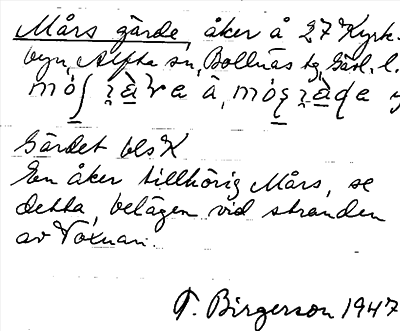 Mårs gärde, åker å 27 Kyrk-
byn, Alfta sn, Bollnäs tg, Gävl. l.
Gärdet bls K
En åker tillhörig Mårs, se
detta, belägen vid stranden
av Voxnan.
T. Birgerson 1947